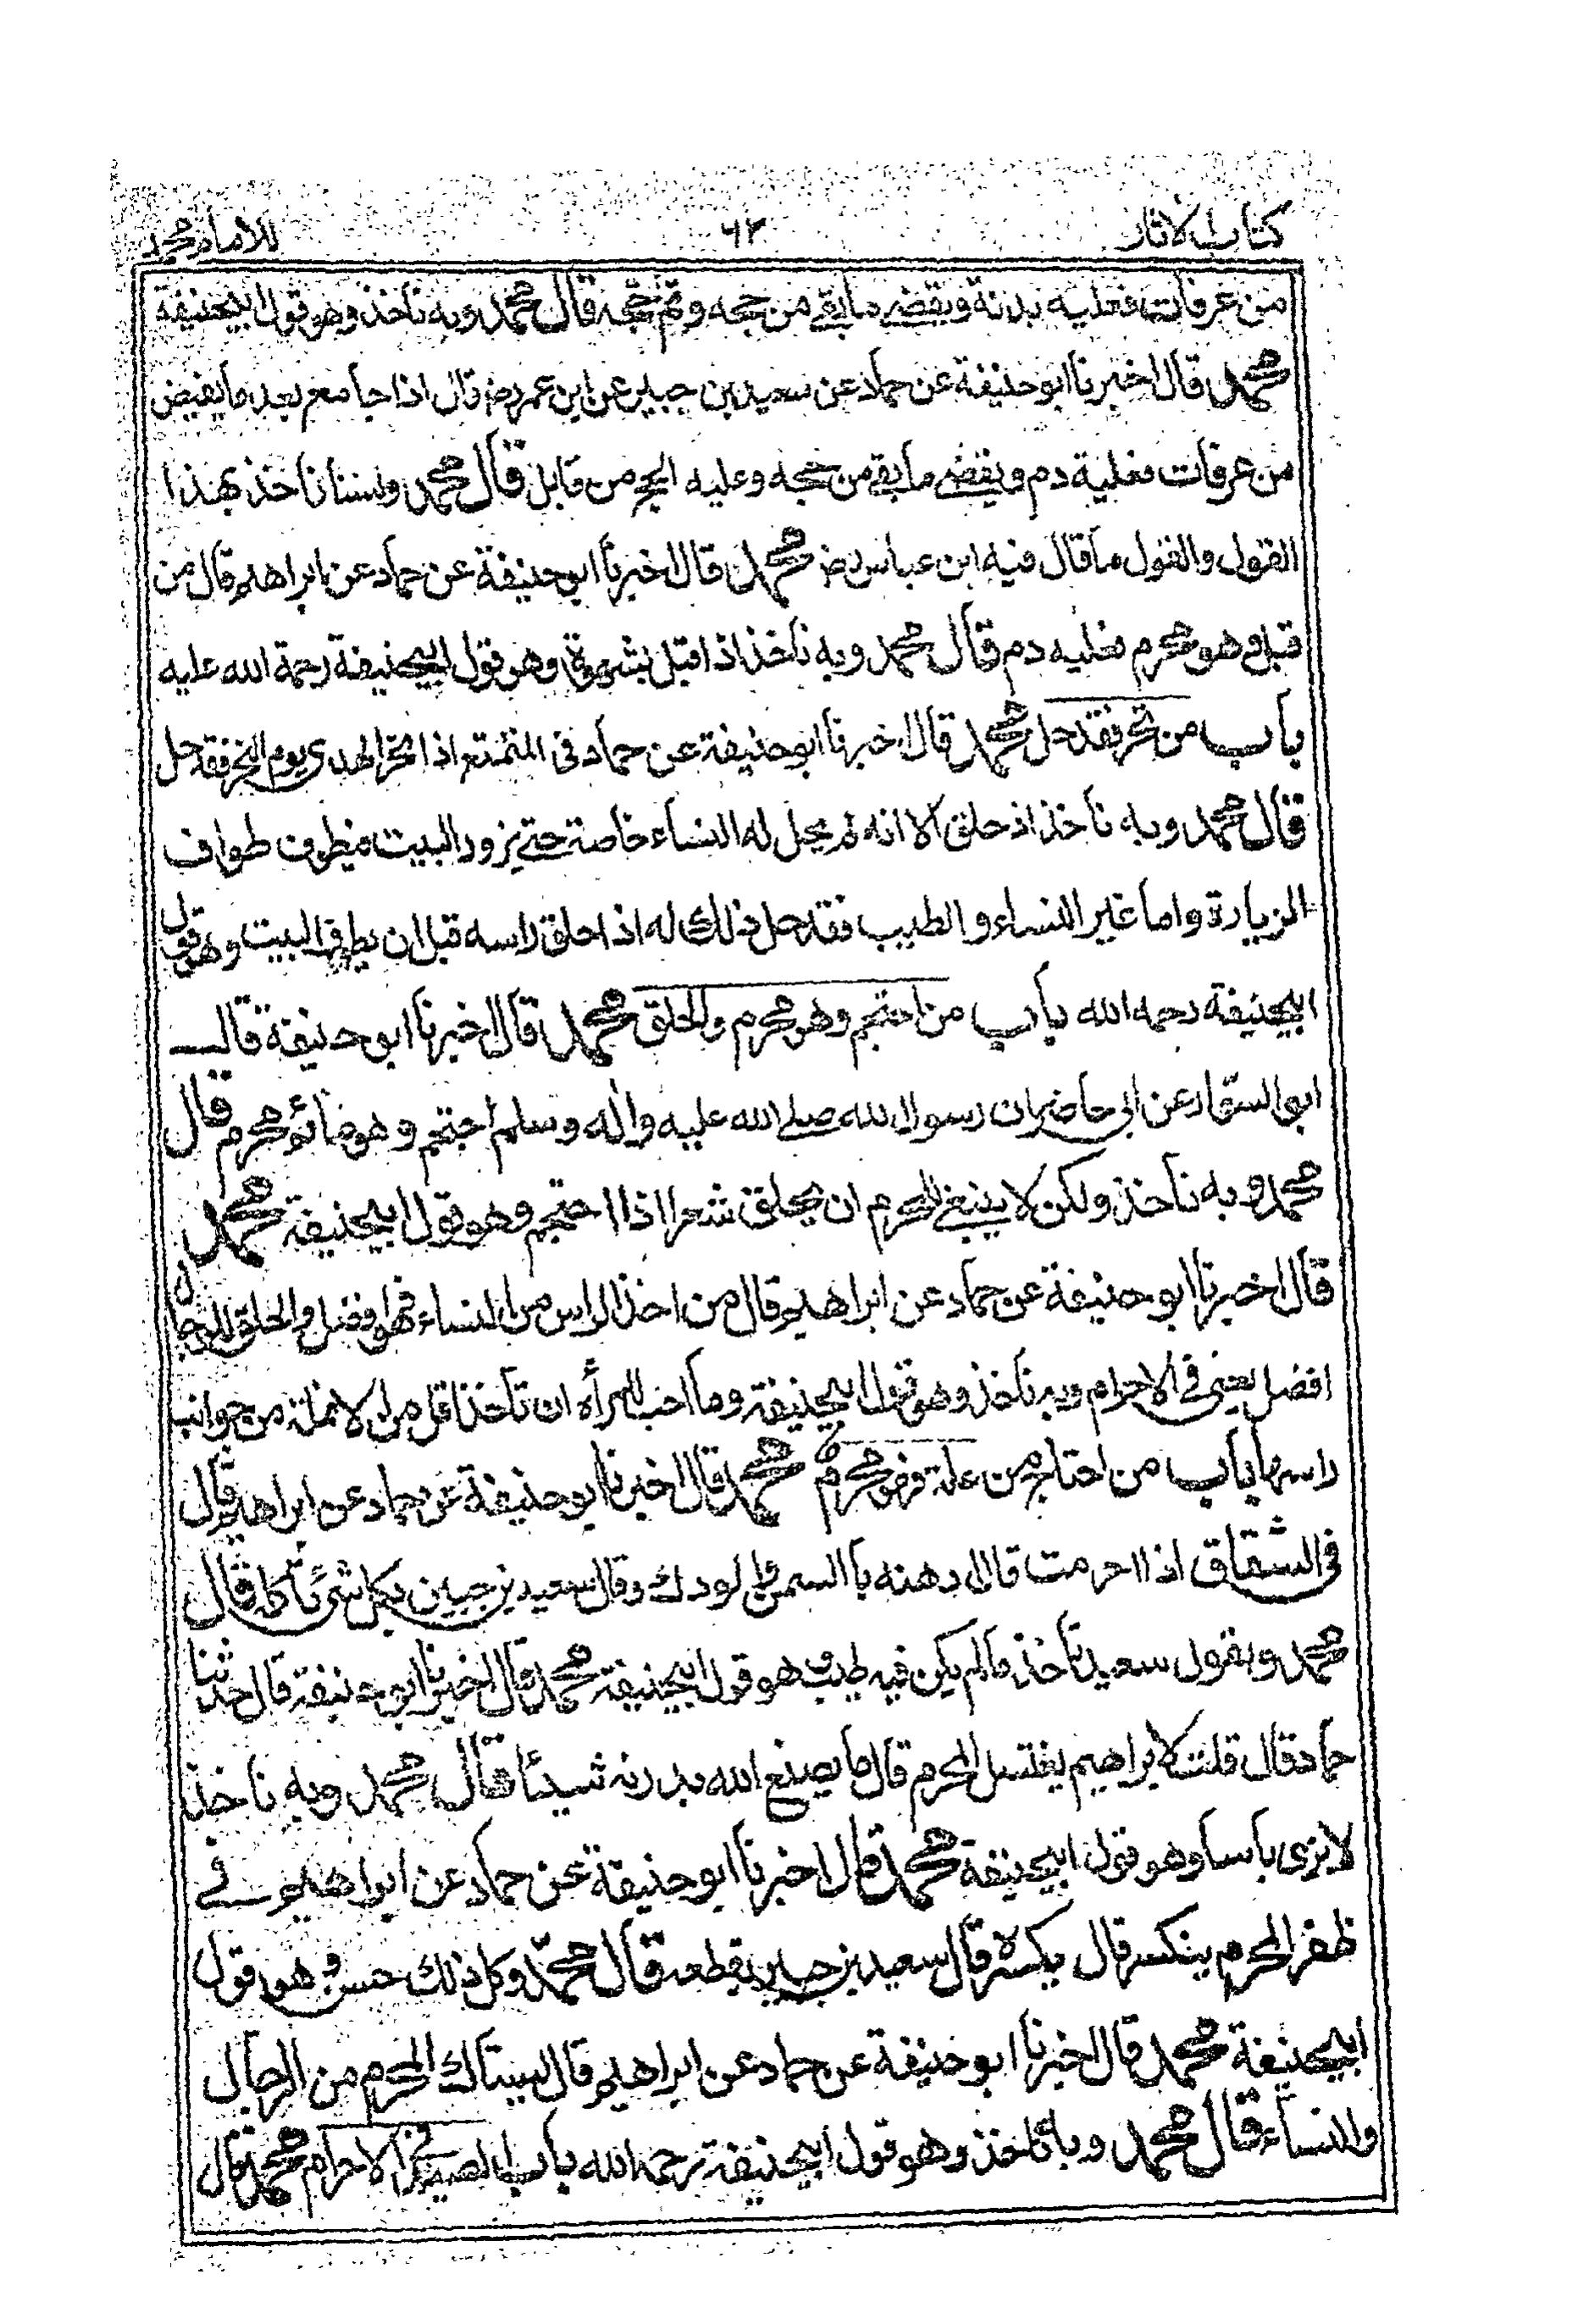 كتاب الاثار ٦٢ للامام محمد
من عرفات فعليه بدنة ويقضے مابقے من حجه وتم حجه قال محمد وبه ناخذ وهو قول ابيحنيفة
محمد قال اخبرنا ابو حنيفة عن حماد عن سعيد بن جبير عن ابن عمر رضـ قال اذا جامع بعد ما يفيض
من عرفات فعلية دم ويقضے مابقے من حجه وعليه الحج من قابل قال محمد ولسنا ناخذ بهذا
القول والقول ما قال فيه ابن عباس رضـ محمد قال اخبرنا ابو حنيفة عن حماد عن ابراهيم قال من
قبل وهو محرم فعليه دم قال محمد وبه ناخذ اذا قبل بشهوة وهو قول ابيحنيفة رحمة الله عليه
باب من نحر فقد حل محمد قال اخبرنا ابو حنيفة عن حماد في المتمتع اذا نحر الهدى يوم النحر فقد حل
قال محمد وبه ناخذ اذ حلق الا انه لم يحل له النساء خاصة حتے يزور البيت فيطوف طواف
الزيارة واما غير النساء والطيب فقد حل ذلك له اذا حلق راسه قبل ان يطوف البيت وهو قول
ابيحنيفة رحمه الله باب من احتجم وهو محرم والحلق محمد قال اخبرنا ابو حنيفة قال
ابو السوار عن ابى حاضر ان رسول الله صلے الله عليه واله وسلم احتجم وهو صائم محرم قال
محمد وبه ناخذ ولكن لا ينبغے للمحرم ان يحلق شعرا اذا احتجم وهو قول ابيحنيفة محمد
قال اخبرنا ابو حنيفة عن حماد عن ابراهيم قال من اخذ الراس من النساء فهو افضل والحلق للرجال
افضل يعنى فى الاحرام وبه ناخذ وهو قول ابيحنيفة وما احب للمرأه ان تأخذ اقل من الانملة من جوانب
راسها باب من احتاج من علة فهو محرم محمد قال اخبرنا ابو حنيفة عن حماد عن ابراهيم قال
فى الشقاق اذا احرمت قال ادهنه با السمن والودك وقال سعيد بن جبير بكل شئ تأكله قال
محمد وبقول سعيد ناخذ مالم يكن فيه طيب وهو قول ابيحنيفة محمد قال اخبرنا ابو حنيفة قال حدثنا
حماد قال قلت لابراهيم يغتسل المحرم قال ما يصنع الله بدرنه شيئا قال محمد وبه ناخذ
لا نرى باسا وهو قول ابيحنيفة محمد قال اخبرنا ابو حنيفة عن حماد عن ابراهيم فے
ظفر المحرم ينكسر قال يكسره قال سعيد بن جبير يقطعه قال محمد وكل ذلك حسن وهو قول
ابيحنيفة محمد قال اخبرنا ابو حنيفة عن حماد عن ابراهيم قال يستاك المحرم من الرجال
والنساء قال محمد وبه ناخذ وهو قول ابيحنيفة رحمه الله باب الصيد فى الاحرام محمد قال